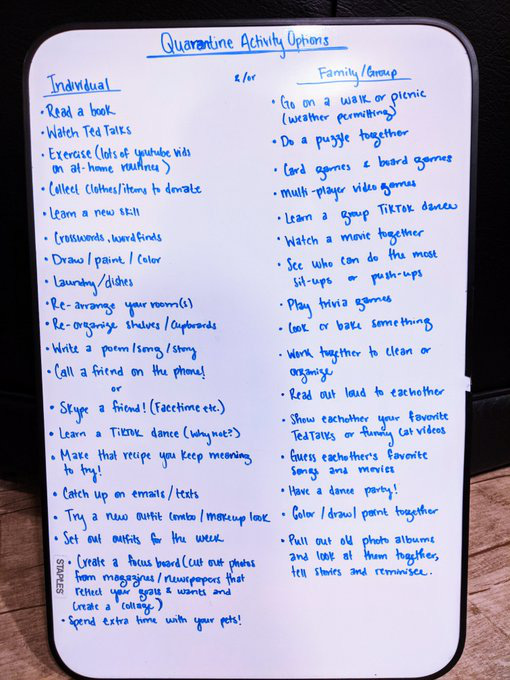 Quarantine Activity Options
Individual
&/or
Family/Group
• Read a book
• Watch Ted Talks
• Exercise (lots of youtube vids
on at-home routines)
• Collect clothes/items to donate
• Learn a new skill
• Crosswords, wordfinds
• Draw / paint / color
• Laundry/dishes
• Re-arrange your room(s)
• Re-organize shelves / Cupboards
• Write a poem/song/story
• Call a friend on the phone!
or
• Skype a friend! (Facetime etc.)
• Learn a TikTok dance (Why not?)
• Make that recipe you keep meaning
to try!
• Catch up on emails/texts
• Try a new outfit combo/makeup look
• Set out outfits for the week
• Create a focus board (cut out photos
from magazines/newspapers that
reflect your goals & wants and
create a collage)
• Spend extra time with your pets!
• Go on a walk or picnic
(weather permitting)
• Do a puzzle together
• Card games & board games
• Multi-player video games
• Learn a group TikTok dance
• Watch a movie together
• See who can do the most
sit-ups or push-ups
• Play trivia games
• Cook or bake something
• Work together to clean or
organize
• Read out loud to eachother
• Show eachother your favorite
TedTalks or funny cat videos
• Guess eachother's favorite
songs and movies
• Have a dance party!
• Color/draw/paint together
• Pull out old photo albums
and look at them together,
tell stories and reminisce.
STAPLES